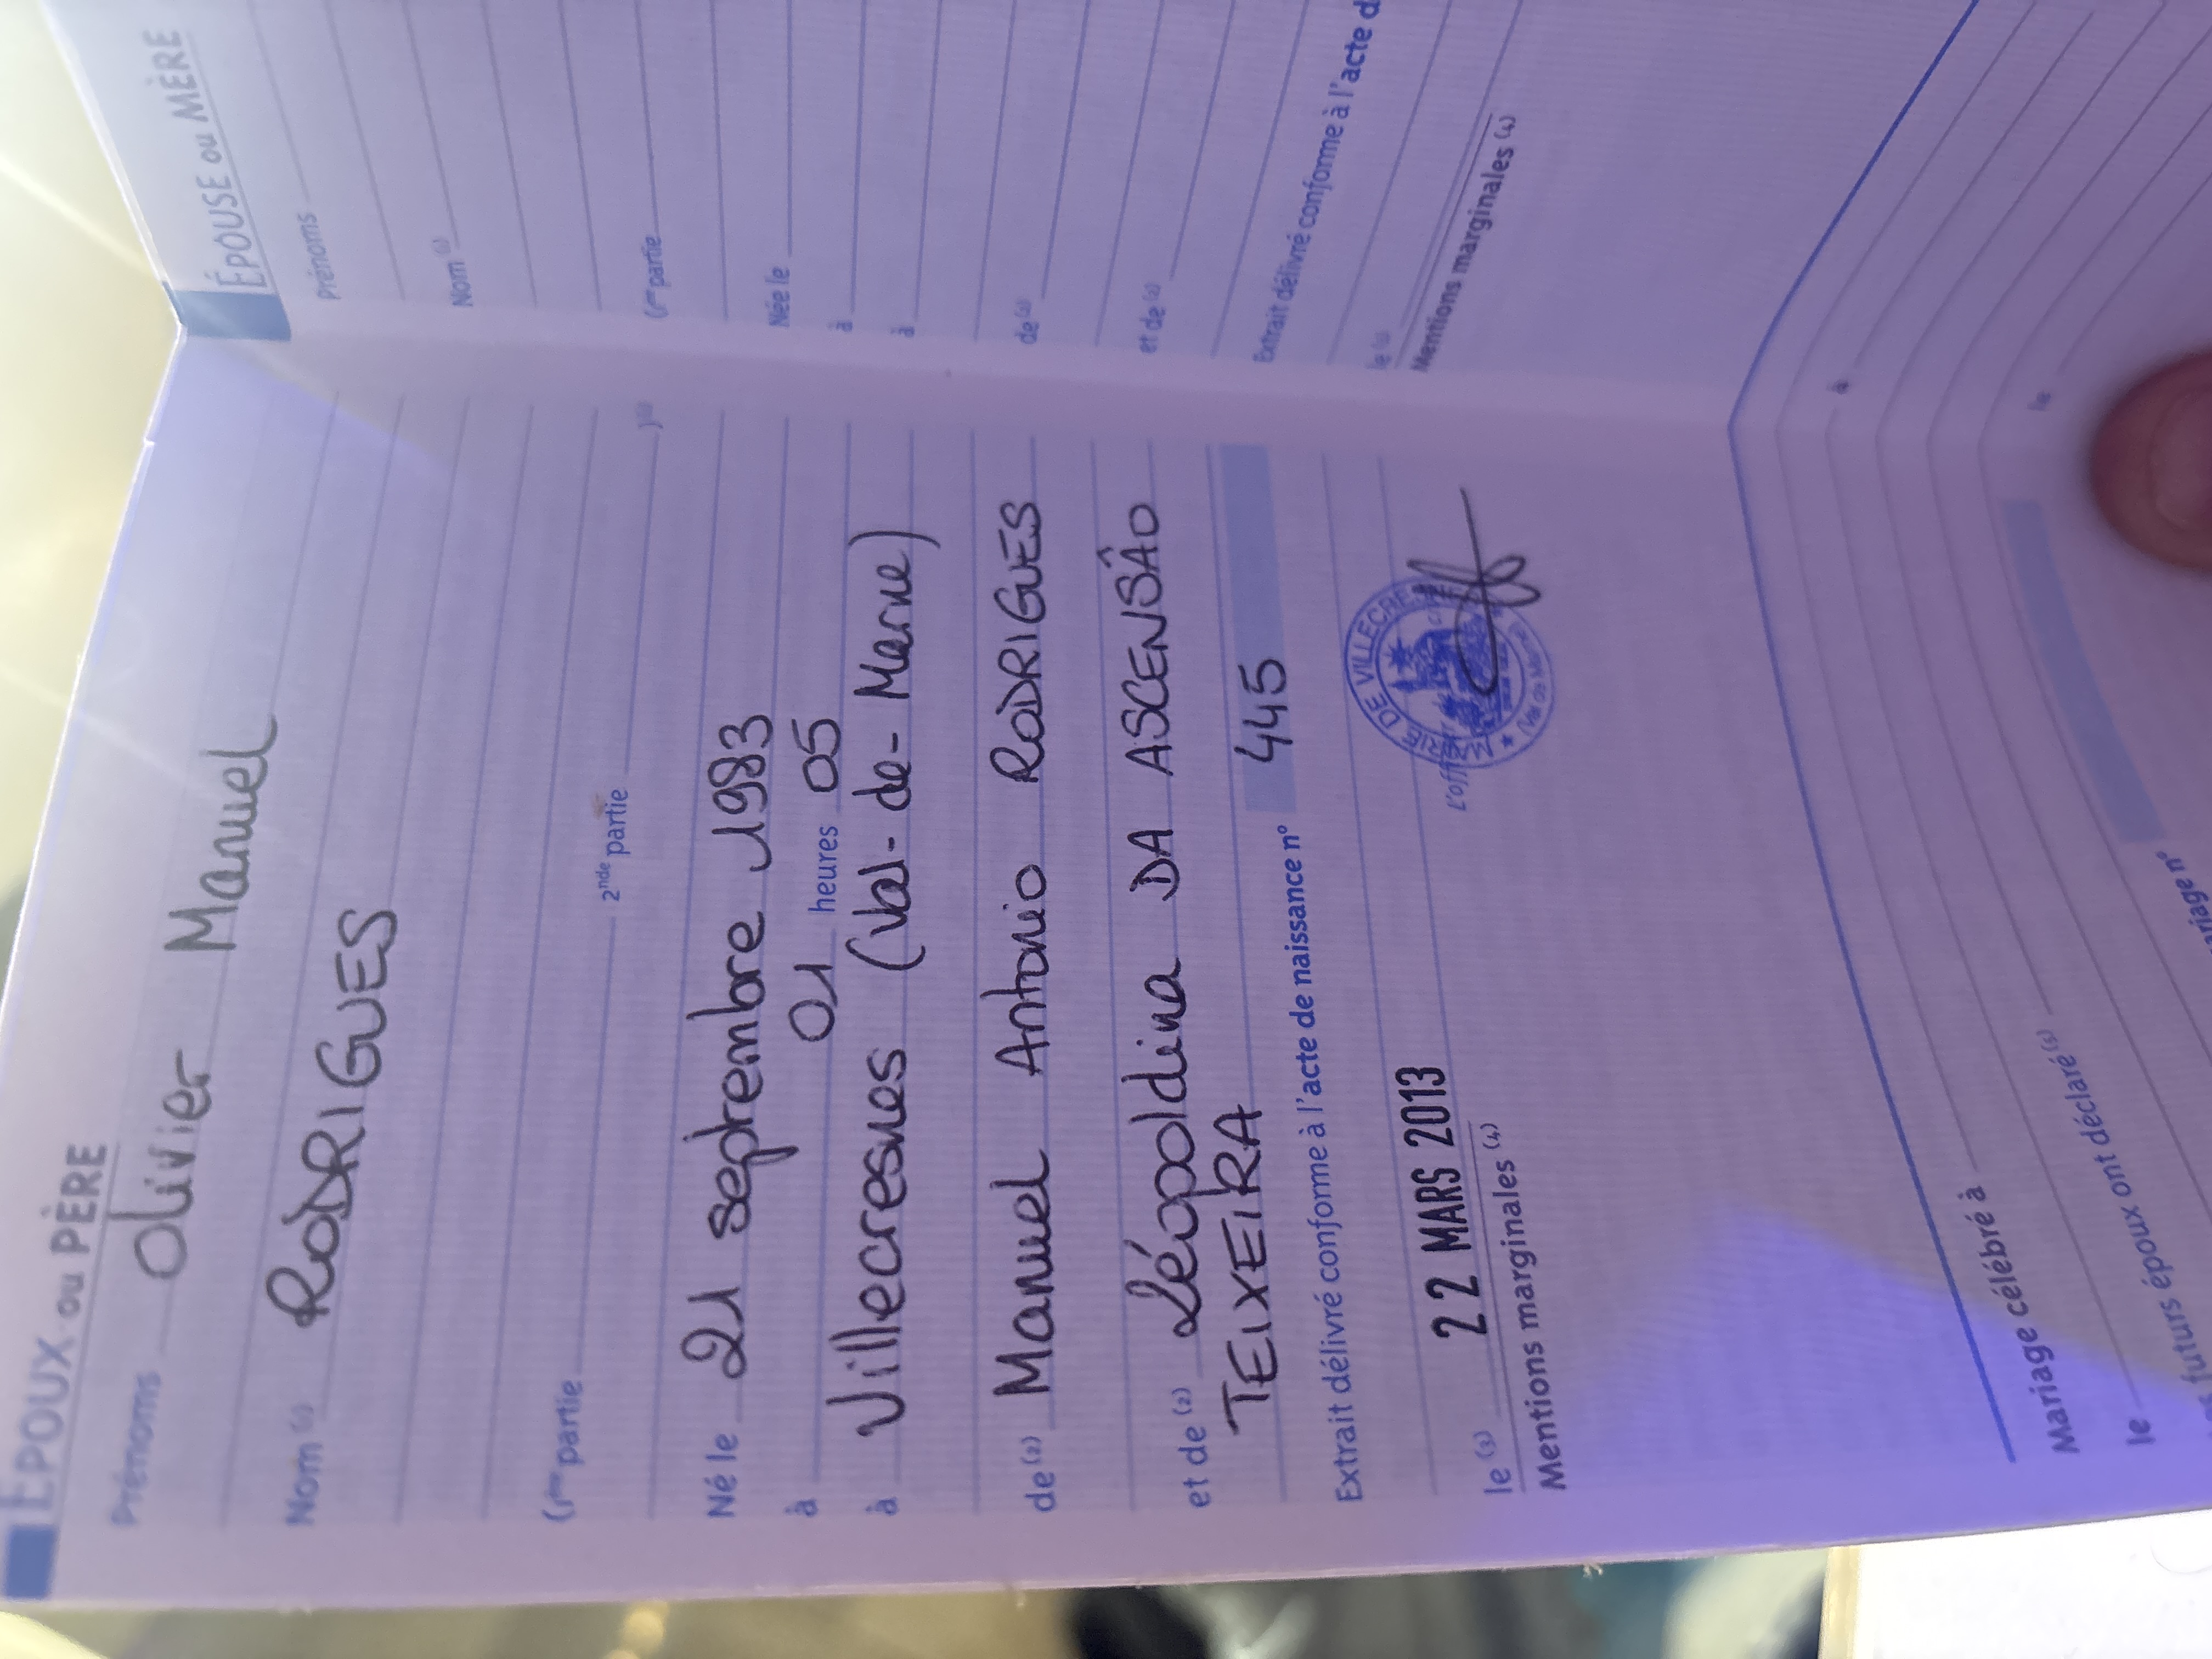 ÉPOUX ou PÈRE
Prénoms Olivier Manuel
Nom (1) RODRIGUES
(1ère partie 2nde partie )(1)
Né le 21 septrembre 1983
à 01 heures 05
à Villecresnes (Val-de-Marne)
de (2) Manuel Antonio RODRIGUES
et de (2) Léopoldina DA ASCENSÂO
TEIXEIRA
Extrait délivré conforme à l'acte de naissance n° 445
le (3) 22 MARS 2013
L'offi
DE VILLECRE
Mentions marginales (4)
ÉPOUSE ou MÈRE
Prénoms
Nom (1)
(1ère partie
Née le
à
à
de (2)
et de (2)
Extrait délivré conforme à l'acte d
le (3)
Mentions marginales (4)
Mariage célébré à
à
le
le
futurs époux ont déclaré (5)
ariage n°